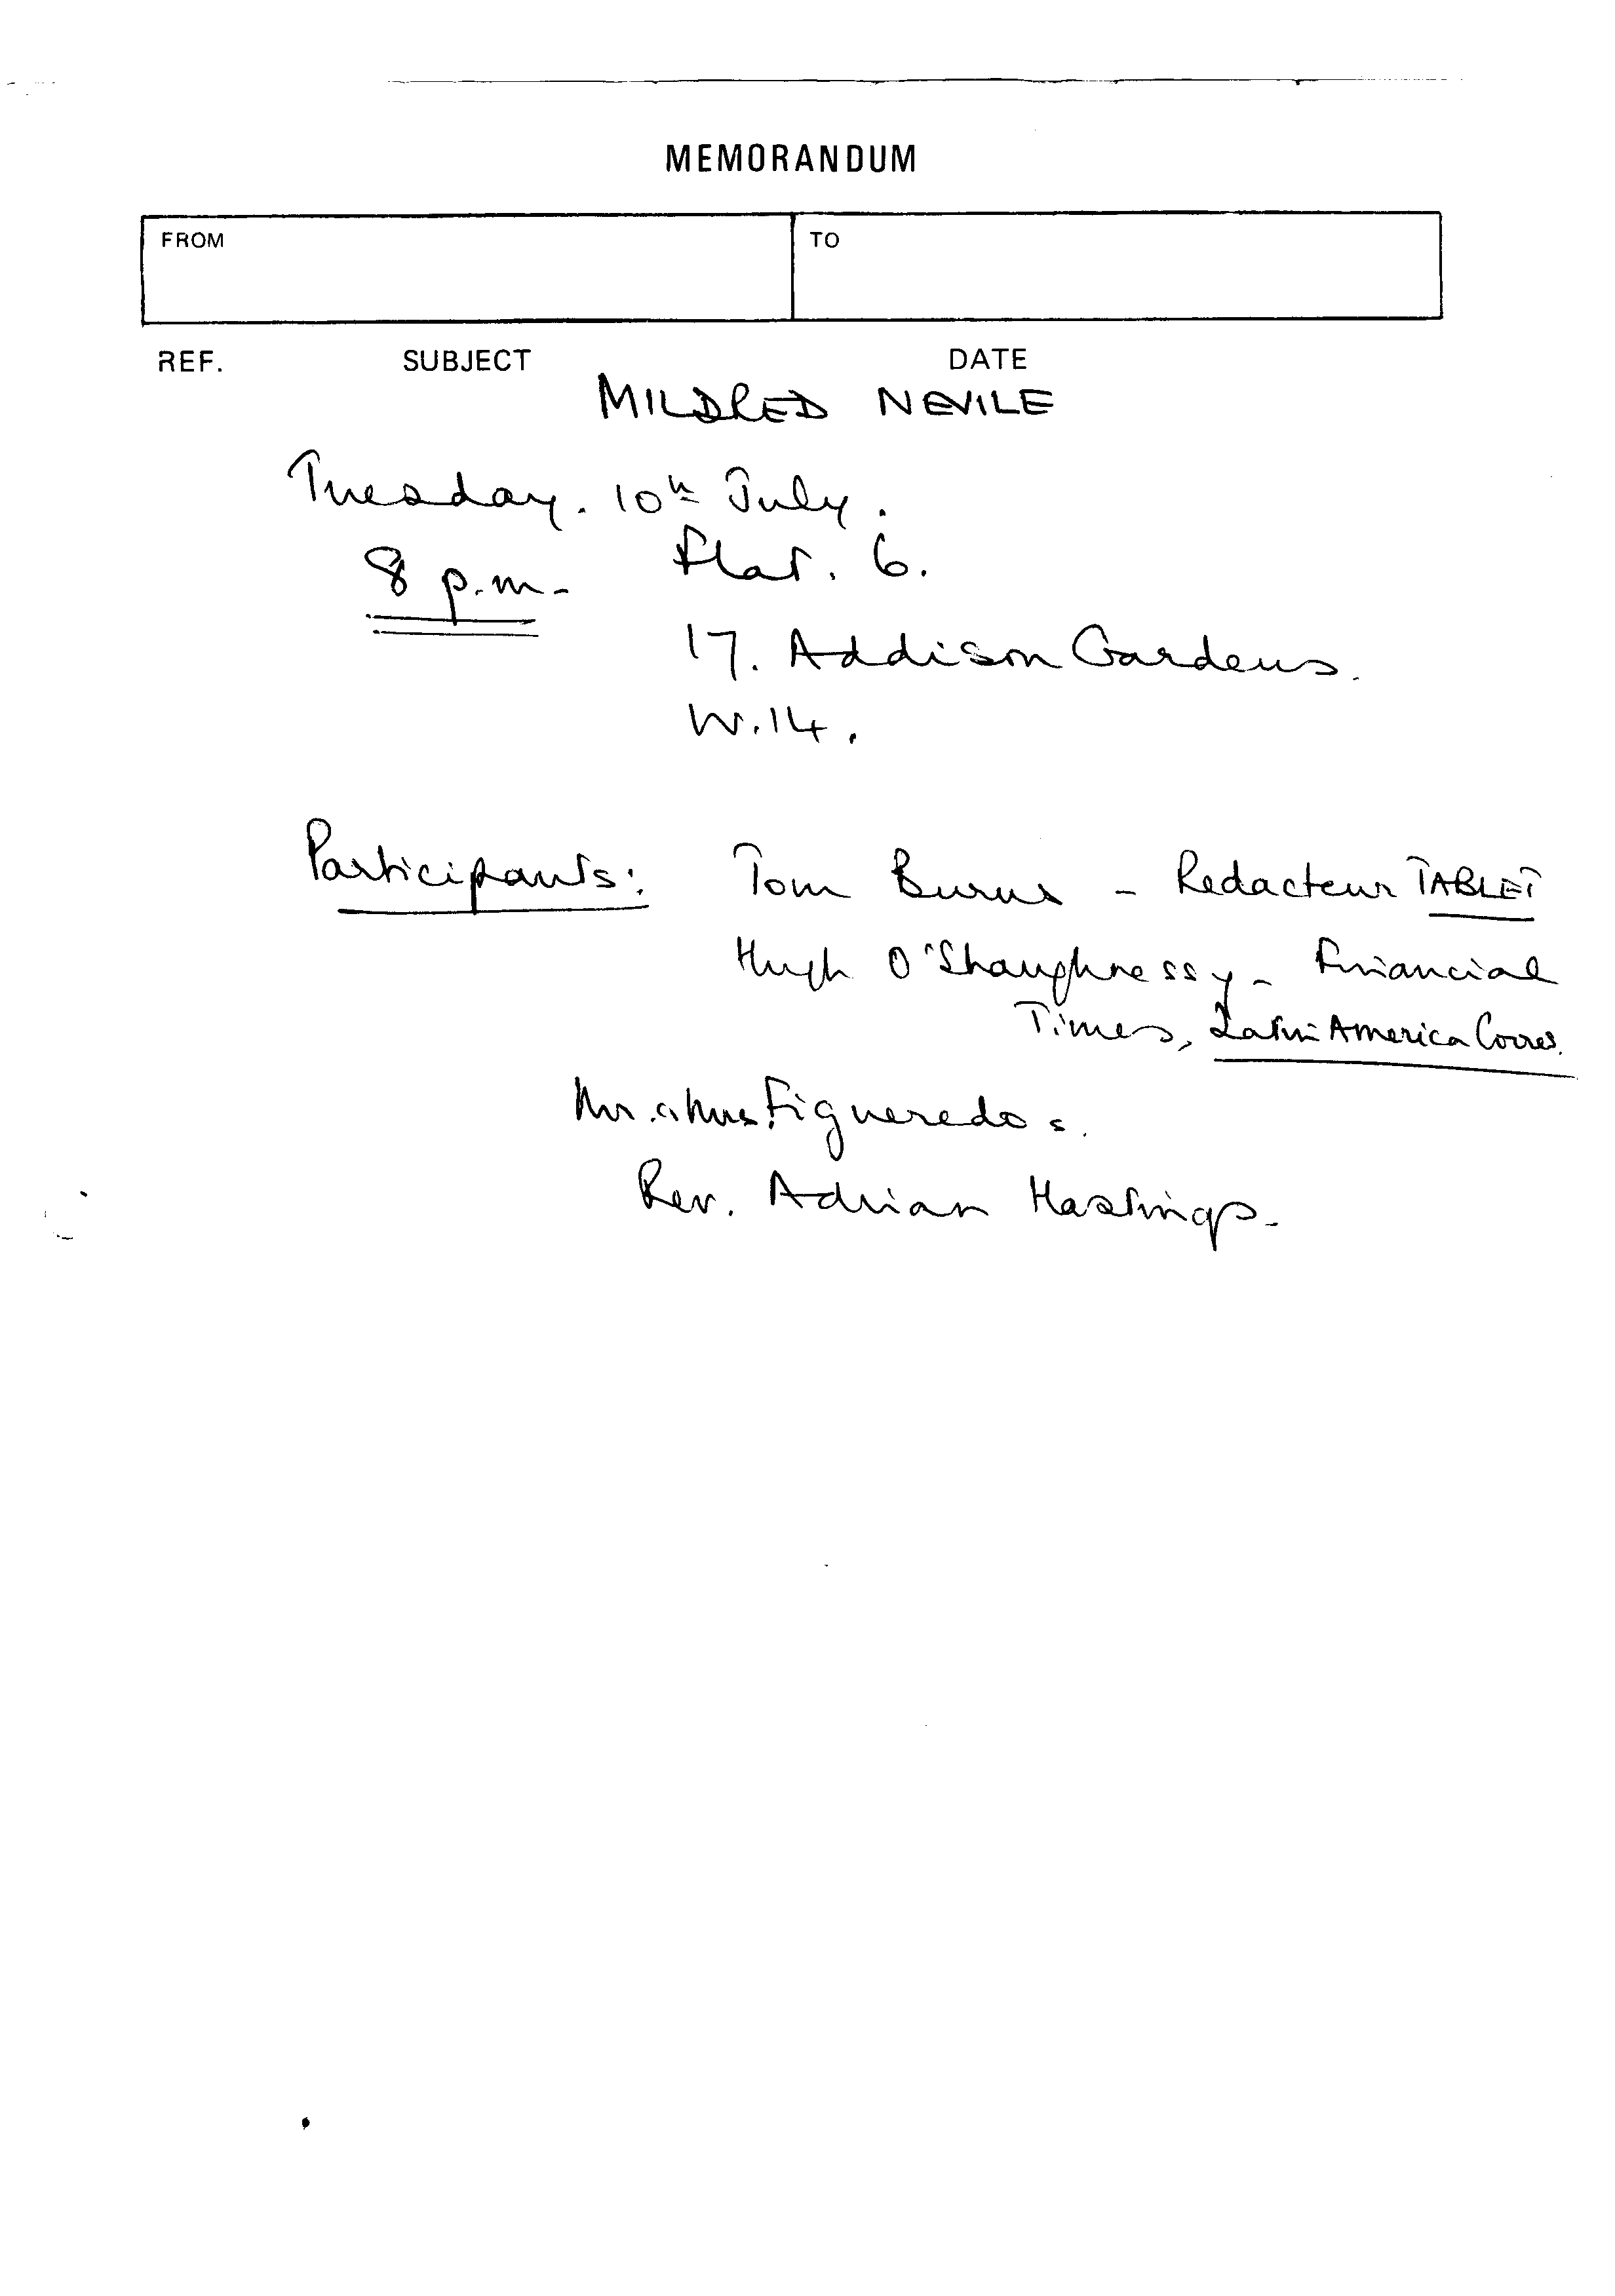 MEMORANDUM
FROM TO
REF. SUBJECT DATE
MILDRED NEVILE
Tuesday. 10th July.
8 p.m. Flat. 6.
17. Addison Gardens.
W.14.
Participants: Tom Burns - Redacteur TABLET
Hugh O'Shaughnessy - Financial
Times, Latin America Corres.
Mr. & Mrs. Figueredo s.
Rev. Adrian Hastings.